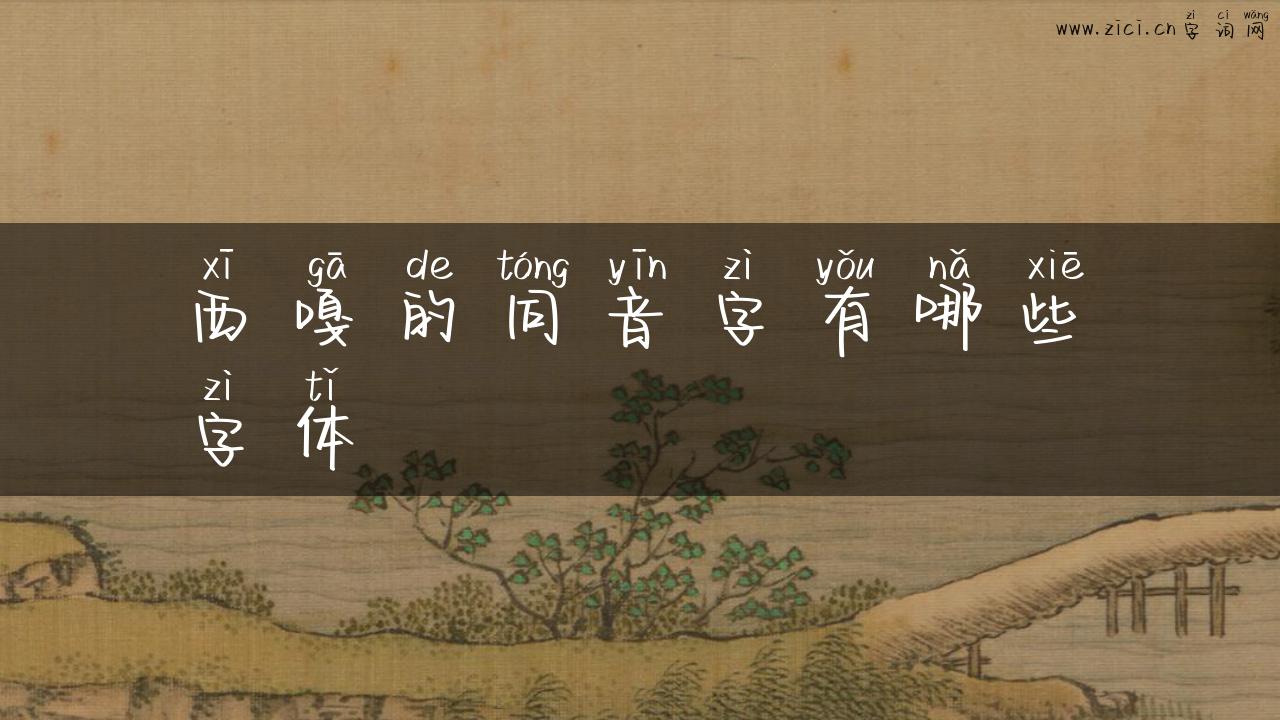 zì cí wǎng
www.zici.cn 字词网
xī gā de tóng yīn zì yǒu nǎ xiē
西嘎的同音字有哪些
zì tǐ
字体